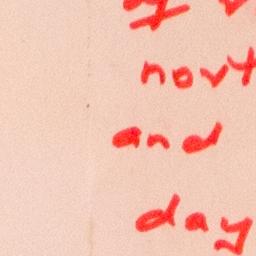 nort
and
day